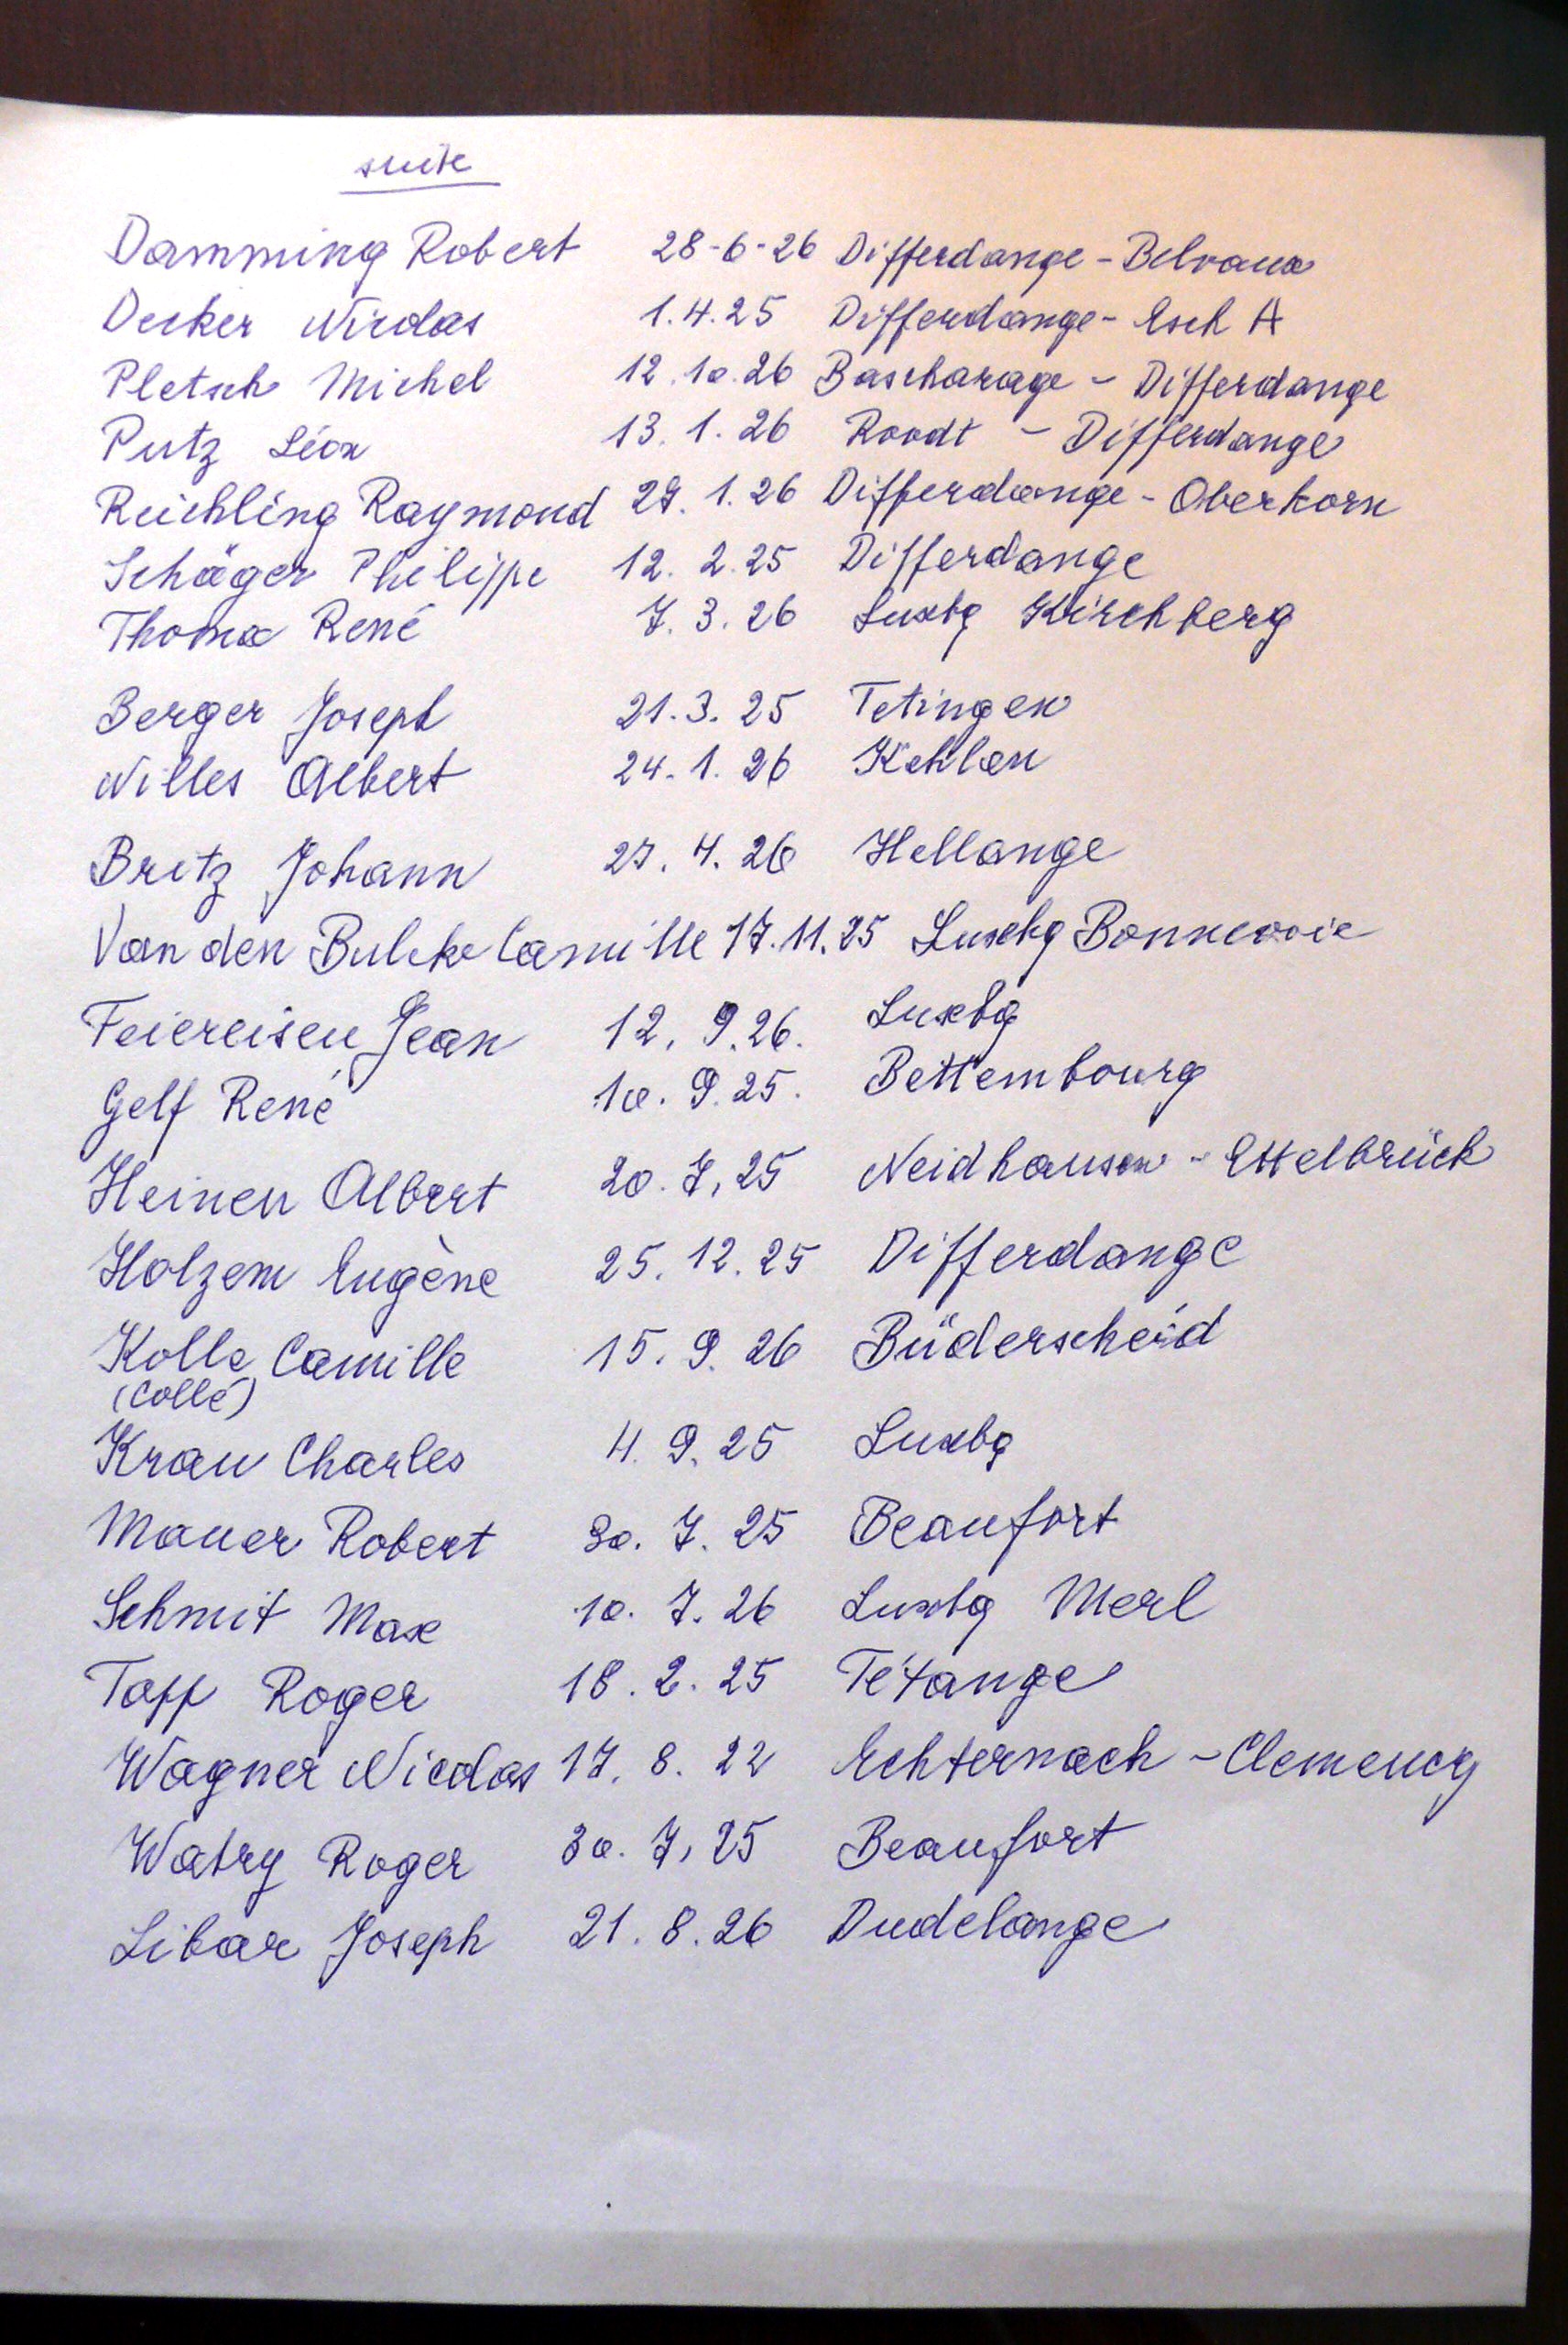 suite
Damming Robert 28-6-26 Differdange - Belvaux
Decker Nicolas 1.4.25 Differdange - Esch A
Pletsch Michel 12.10.26 Bascharage - Differdange
Putz Léon 13.1.26 Roodt - Differdange
Reichling Raymond 29.1.26 Differdange - Oberkorn
Schäger Philippe 12.2.25 Differdange
Thoma René 7.3.26 Luxbg Kirchberg
Berger Joseph 21.3.25 Tetingen
Nilles Albert 24.1.26 Kehlen
Britz Johann 27.4.26 Hellange
Van den Bulcke Camille 17.11.25 Luxbg Bonnevoie
Feiereisen Jean 12.9.26. Luxbg
Gelf René 10.9.25. Bettembourg
Heinen Albert 20.7.25 Neidhausen - Ettelbrück
Holzem Eugène 25.12.25 Differdange
Kolle Camille 15.9.26 Büderscheid
(Collé)
Krau Charles 4.9.25 Luxbg
Mauer Robert 30.7.25 Beaufort
Schmit Max 10.7.26 Luxbg Merl
Tapp Roger 18.2.25 Tétange
Wagner Nicolas 17.8.22 Echternach - Clemency
Watry Roger 30.7.25 Beaufort
Libar Joseph 21.8.26 Dudelange